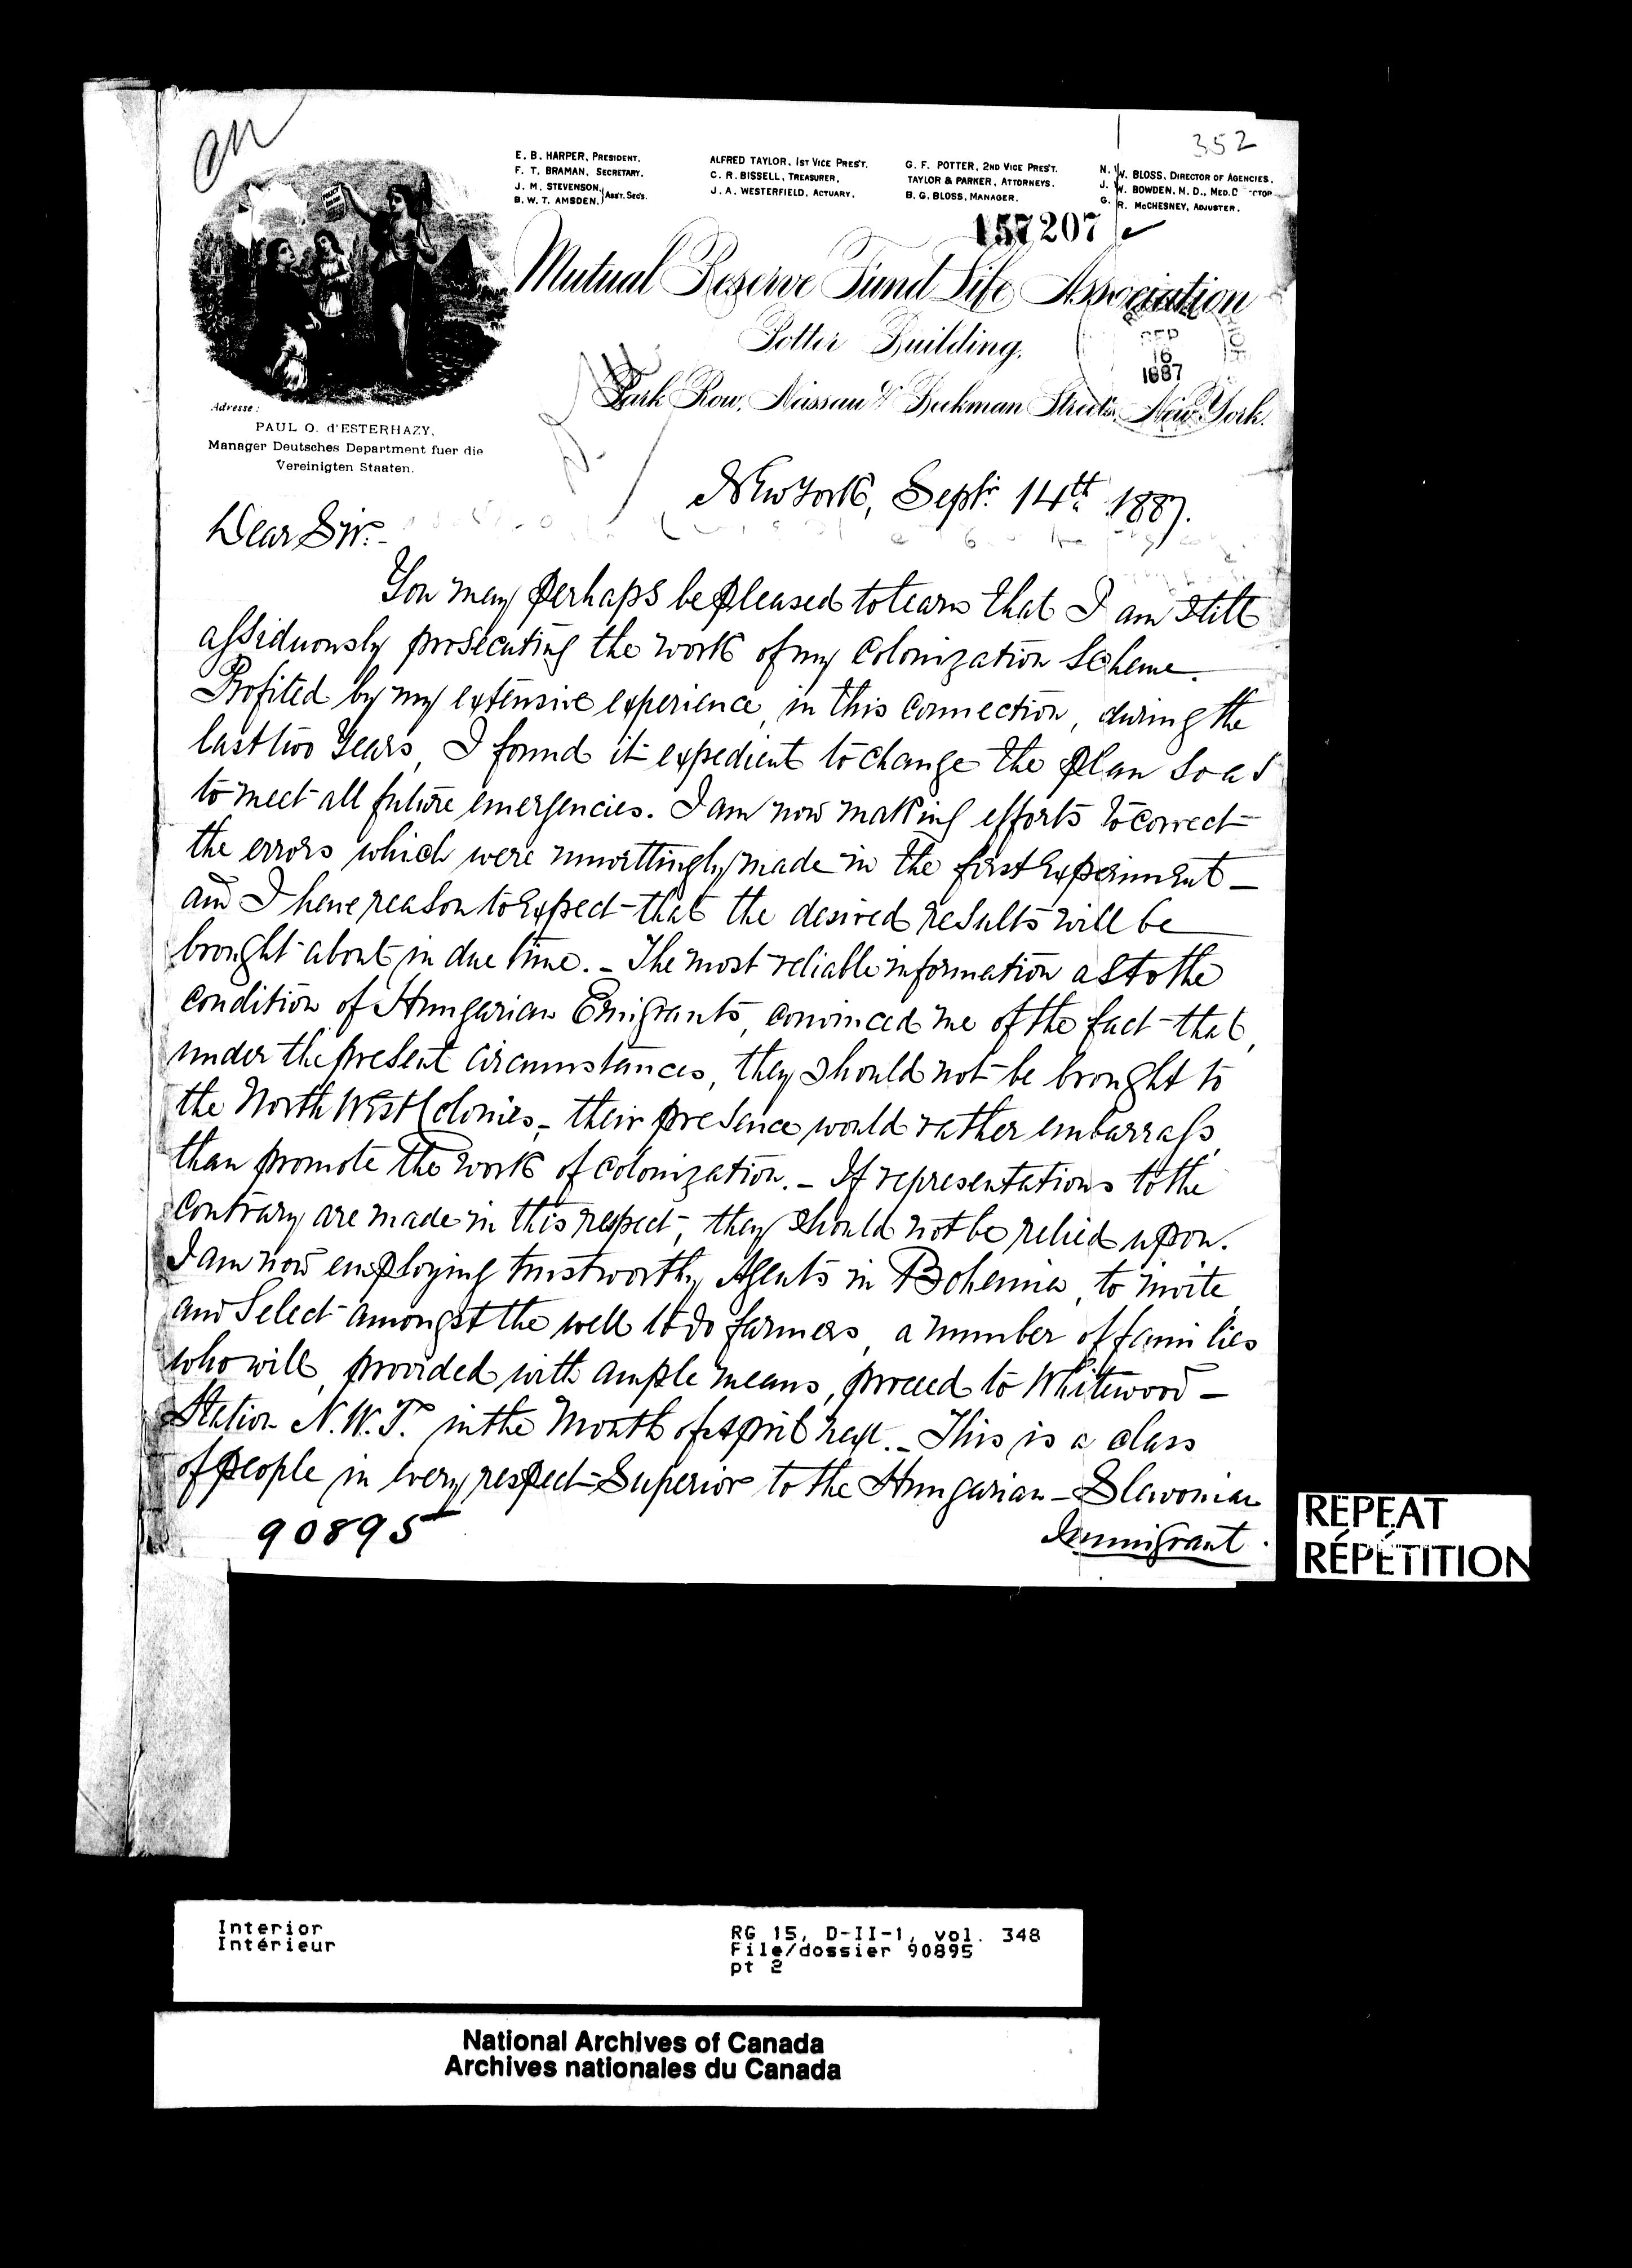 352
E. B. HARPER, PRESIDENT.
F. T. BRAMAN, SECRETARY.
J. M. STEVENSON, } ASS'T. SEC'S.
B. W. T. AMSDEN,
ALFRED TAYLOR, 1ST VICE PRES'T.
C. R. BISSELL, TREASURER.
J. A. WESTERFIELD, ACTUARY.
G. F. POTTER, 2ND VICE PRES'T.
TAYLOR & PARKER, ATTORNEYS.
B. G. BLOSS, MANAGER.
N. W. BLOSS, DIRECTOR OF AGENCIES.
J. W. BOWDEN, M. D., MED. D CTOR
G. R. McCHESNEY, ADJUSTER.
157207
Mutual Reserve Fund Life Association
Potter Building,
Park Row, Nassau & Beekman Streets, New York.
SEP
16
1887
Adresse:
PAUL O. d'ESTERHAZY,
Manager Deutsches Department fuer die
Vereinigten Staaten.
New York, Septr. 14th 1887.
Dear Sir:-
You may perhaps be pleased to learn that I am still
assiduously prosecuting the work of my Colonization Scheme.
Profited by my extensive experience, in this connection, during the
last two Years, I found it expedient to change the plan so as
to meet all future emergencies. I am now making efforts to correct
the errors which were unwittingly made in the first Experiment –
and I have reason to Expect that the desired results will be
brought about in due time. – The most reliable information as to the
condition of Hungarian Emigrants, convinced me of the fact that,
under the present circumstances, they should not be brought to
the North West Colonies, – their presence would rather embarrass,
than promote the work of colonization. – If representations to the
Contrary are made in this respect, they should not be relied upon.
I am now employing trustworthy Agents in Bohemia, to invite
and Select amongst the well to do farmers, a number of families
who will, provided with ample means, proceed to Whitewood –
Station N.W.T. in the Month of April next. – This is a class
of people in every respect Superior to the Hungarian – Slavonian
Immigrant.
90895
REPEAT
RÉPÉTITION
Interior
Intérieur
RG 15, D-II-1, vol. 348
File/dossier 90895
pt 2
National Archives of Canada
Archives nationales du Canada